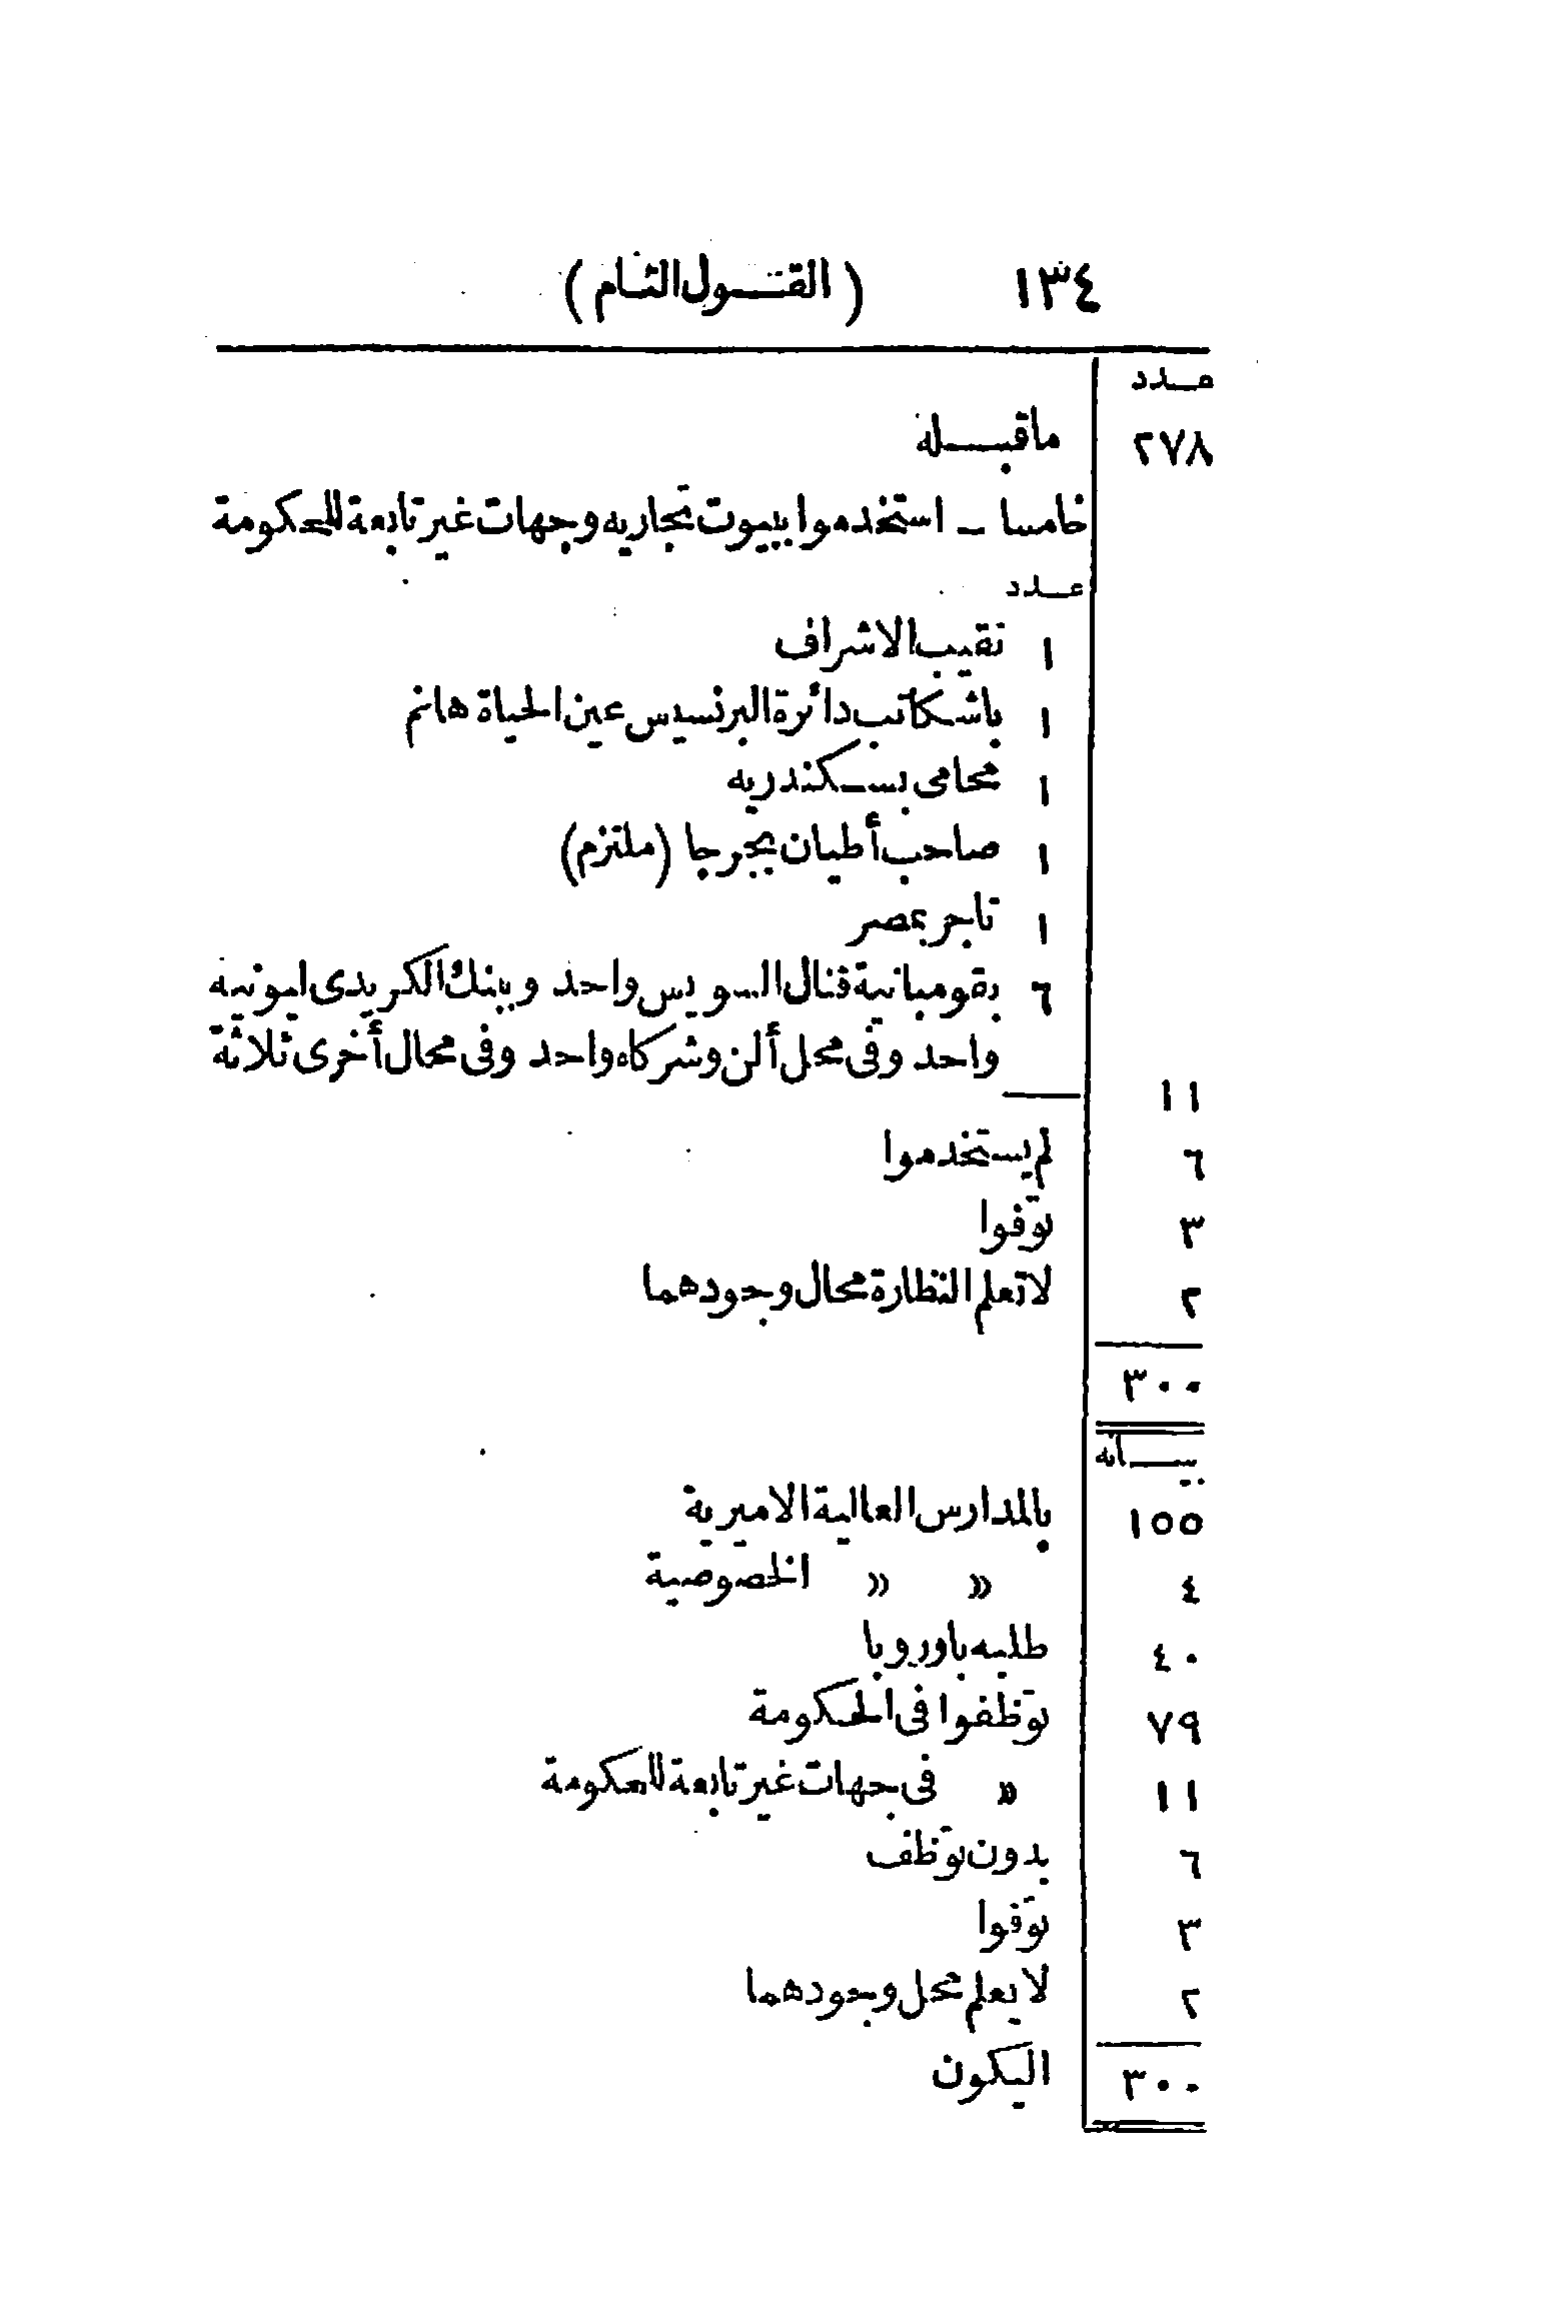 ١٣٤ (القول التام)
عدد
٢٧٨ ماقبله
خامسا - استخدموا ببيوت تجاريه وجهات غير تابعة للحكومة
عدد
١ نقيب الاشراف
١ باشكاتب دائرة البرنسيس عين الحياة هانم
١ محامى بسكندريه
١ صاحب أطيان بجرجا (ملتزم)
١ تاجر بمصر
٦ بقومبانية قنال السويس واحد وببنك الكريدى ليونيه
واحد وفى محل ألن وشركاه واحد وفى محال أخرى ثلاثة
١١
٦ لم يستخدموا
٣ توّفوا
٢ لا تعلم النظارة محال وجودهما
٣٠٠
بيانه
١٥٥ بالمدارس العالية الاميرية
٤ » » الخصوصية
٤٠ طلبه باوروبا
٧٩ توّظفوا فى الحكومة
١١ » فى جهات غير تابعة للحكومة
٦ بدون توّظف
٣ توّفوا
٢ لا يعلم محل وجودهما
٣٠٠ اليكون